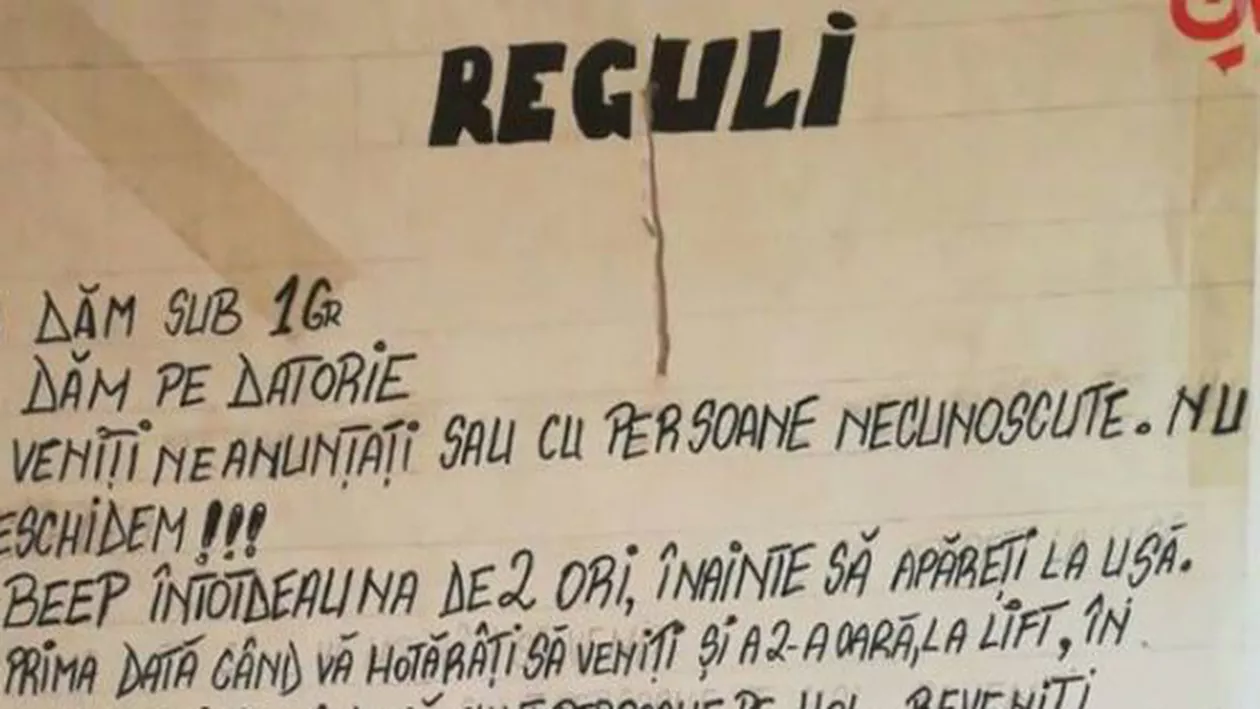 REGULI
DĂM SUB 1GR
DĂM PE DATORIE
VENIȚI NEANUNȚAȚI SAU CU PERSOANE NECUNOSCUTE. NU
ESCHIDEM !!!
BEEP ÎNTOTDEAUNA DE 2 ORI, ÎNAINTE SĂ APĂREȚI LA UȘĂ.
PRIMA DATĂ CÂND VĂ HOTĂRÂȚI SĂ VENIȚI ȘI A 2-A OARĂ, LA LIFT, ÎN
PERSOANE PE HOL REVENIȚI